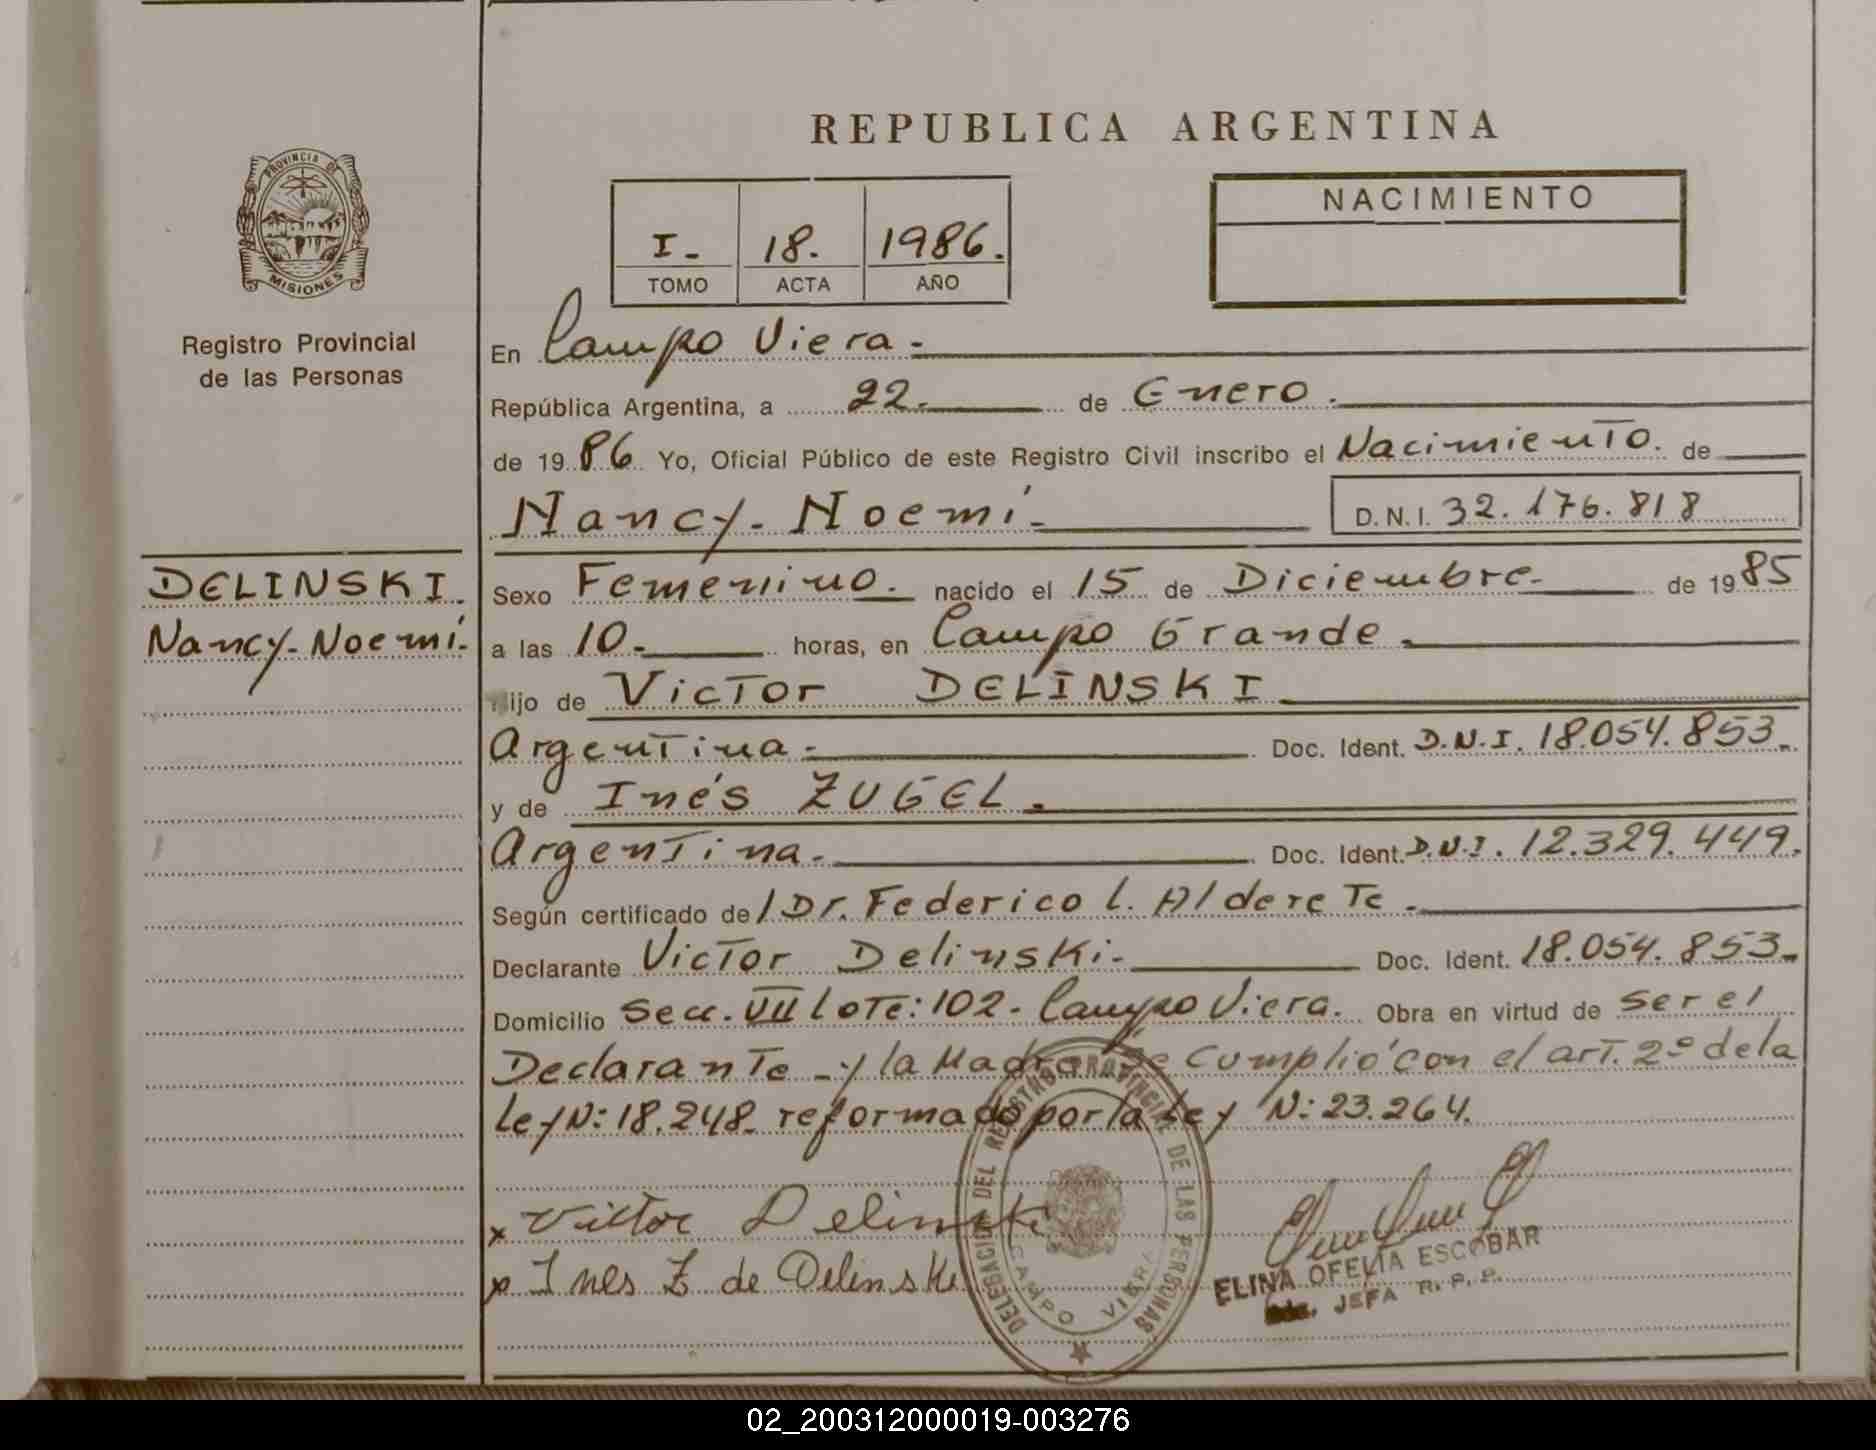 REPUBLICA ARGENTINA
PROVINCIA DE
MISIONES
Registro Provincial
de las Personas
I- 18. 1986.
TOMO ACTA AÑO
NACIMIENTO
En Campo Viera.
República Argentina, a 22. de Enero.
de 19 86 Yo, Oficial Público de este Registro Civil inscribo el Nacimiento. de
Nancy- Noemí- D.N.I. 32.176.818
DELINSKI.
Nancy- Noemí.
Sexo Femenino. nacido el 15 de Diciembre- de 19 85
a las 10- horas, en Campo Grande.
ijo de Victor DELINSKI
Argentina- Doc. Ident. D.N.I. 18.054.853-
y de Inés ZUGEL.
Argentina. Doc. Ident. D.N.I. 12.329.449.
Según certificado de/ Dr. Federico L. Alderete.
Declarante Victor Delinski- Doc. Ident. 18.054.853-
Domicilio Secc. VII Lote: 102- Campo Viera. Obra en virtud de ser el
Declarante - y la Madre Se Cumplió con el art. 2º de la
Ley N: 18.248- reformado por la Ley N: 23.264.
x Victor Delinski
x Ines Z de Delinski
DELEGACION DEL REGISTRO PROVINCIAL DE LAS PERSONAS
CAMPO VIERA
ELINA OFELIA ESCOBAR
JEFA R. P. P.
02_200312000019-003276